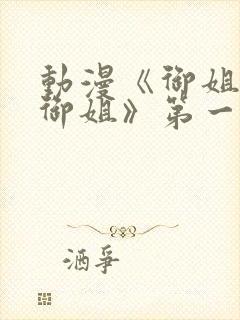 動漫《御姐
御姐》第一
酒爭